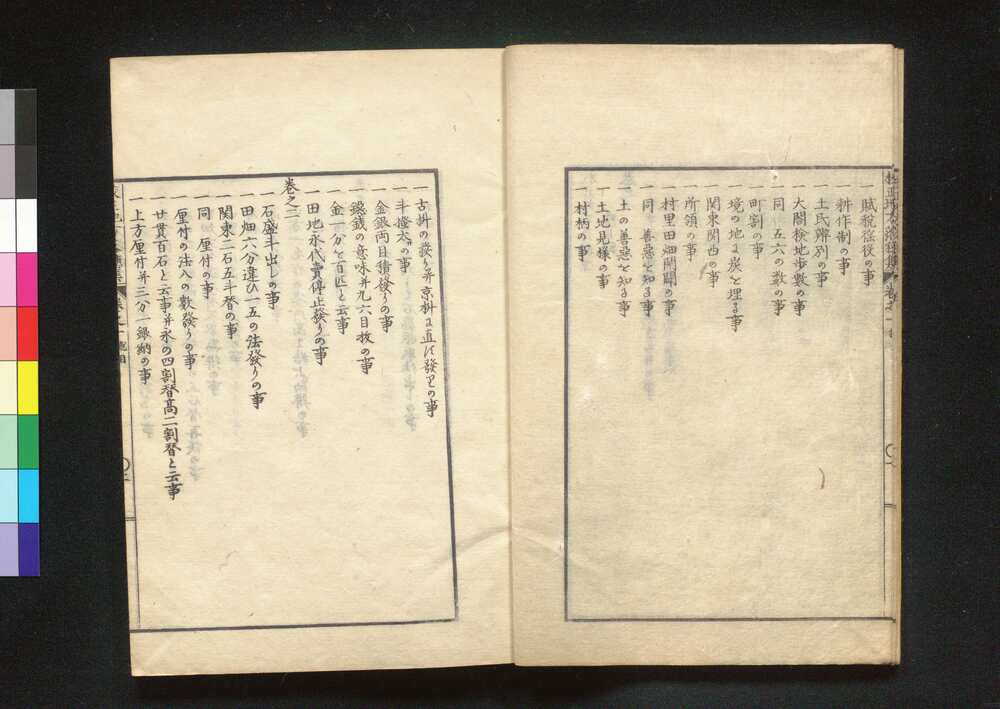 賦税徭役の事
一 耕作制の事
一 土民辨別の事
一 大閤検地歩數の事
一 同 五六の數の事
一 町割の事
一 境の地に炭を埋る事
一 関東関西の事
一 所領の事
一 村里田畑開闢の事
一 同 善惡を知る事
一 土の善惡を知る事
一 土地見様の事
一 村柄の事
一 古枡の發り并京枡に直ル發りの事
一 斗撥太の事
一 金銀両目積發りの事
一 銀錢の意味并九六目枚の事
一 金一分を百匹と云事
一 田地永代賣停止發りの事
巻之二
一 石盛斗出しの事
一 田畑六分違ひ一五の法發りの事
一 関東二石五斗替の事
一 同 厘付の事
一 厘付の法八の數發りの事
一 廿貫百石と云事并永の四割替高二割替と云事
一 上方厘付并三分一銀納の事